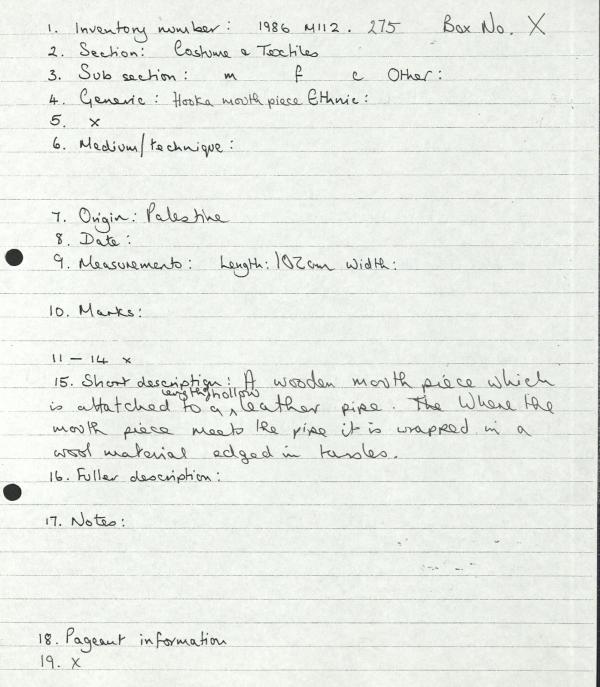 1. Inventory number: 1986 M112. 275 Box No. X
2. Section: Costume & Textiles
3. Sub section: m f c Other:
4. Generic: Hooka mouth piece Ethnic:
5. x
6. Medium/technique:
7. Origin: Palestine
8. Date:
9. Measurements: Length: 102cm Width:
10. Marks:
11 - 14 x
15. Short description: A wooden mouth piece which
lengthy hollow
is attatched to a leather pipe. The Where the
mouth piece meets the pipe it is wrapped in a
wool material edged in tassles.
16. Fuller description:
17. Notes:
18. Pageant information
19. X